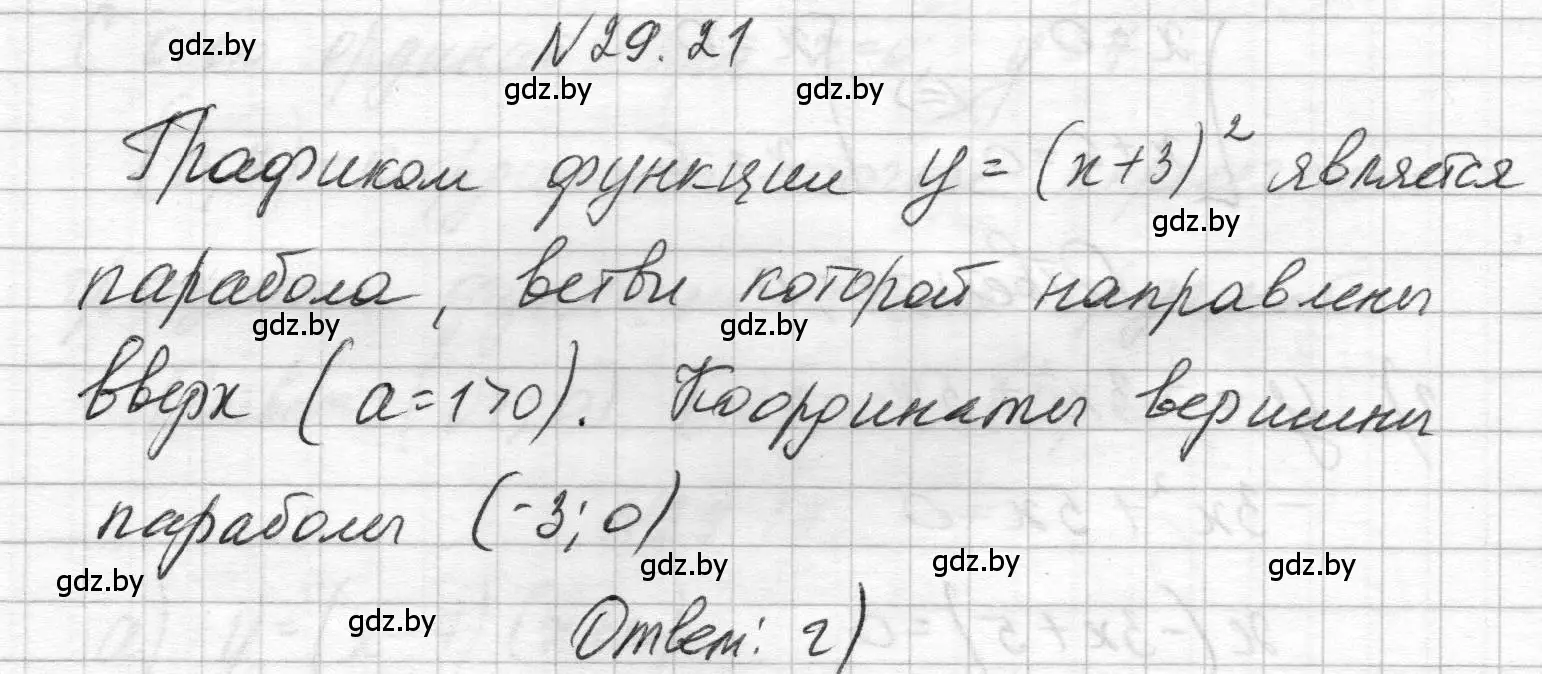 №29.21
Графиком функции y=(x+3)² является
парабола, ветви которой направлены
вверх (a=1>0). Координаты вершины
параболы (-3; 0)
Ответ: г)
gdz.by
gdz.by
gdz.by
gdz.by
gdz.by
gdz.by
gdz.by
gdz.by
gdz.by
gdz.by
gdz.by